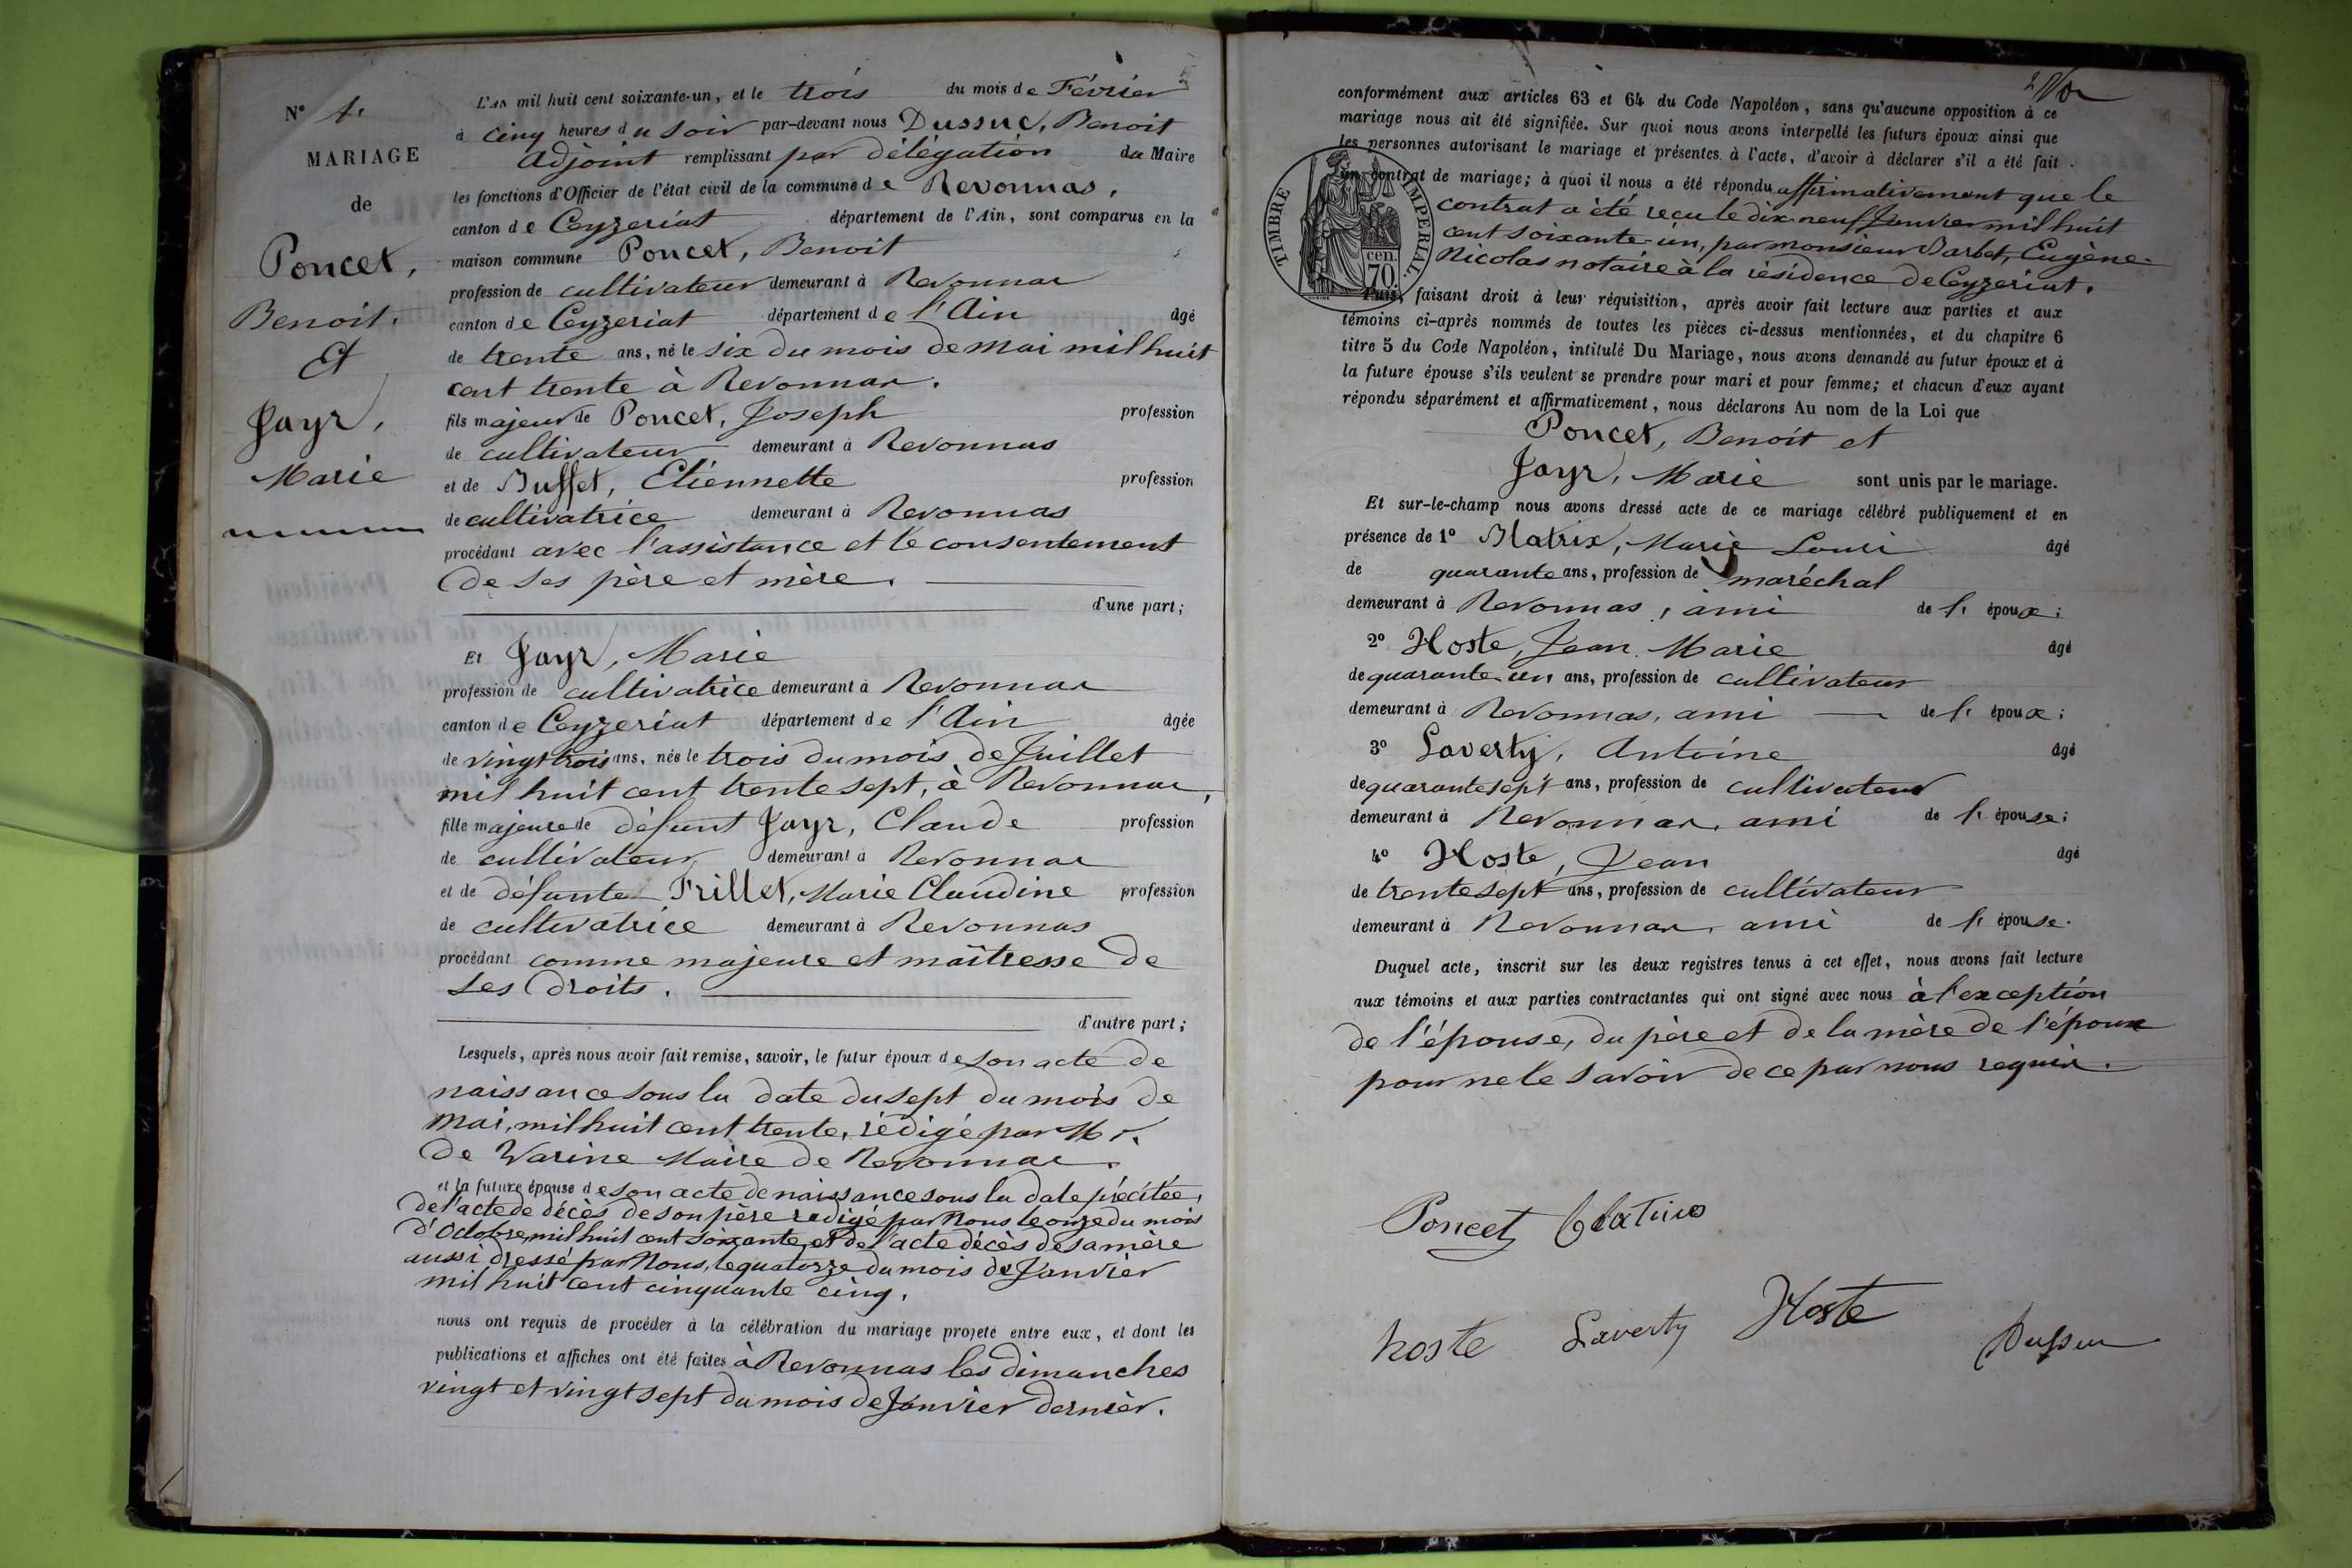 N° 1.
MARIAGE
de
Poncet,
Benoit.
Et
Jayr,
Marie
L'An mil huit cent soixante-un, et le trois du mois de Février
à cinq heures du soir par-devant nous Dussuc, Benoit
adjoint remplissant par délégation du Maire
les fonctions d'Officier de l'état civil de la commune de Revonnas,
canton de Ceyzeriat département de l'Ain, sont comparus en la
maison commune Poncet, Benoit
profession de cultivateur demeurant à Revonnas
canton de Ceyzeriat département de l'Ain âgé
de trente ans, né le six du mois de mai mil huit
cent trente à Revonnas.
fils majeur de Poncet, Joseph profession
de cultivateur demeurant à Revonnas
et de Buffet, Etiennette profession
de cultivatrice demeurant à Revonnas
procédant avec l'assistance et le consentement
de ses père et mère.
d'une part;
Et Jayr, Marie
profession de cultivatrice demeurant à Revonnas
canton de Ceyzeriat département de l'Ain âgée
de vingt trois ans, née le trois du mois de Juillet
mil huit cent trente sept, à Revonnas,
fille majeure de défunt Jayr, Claude profession
de cultivateur demeurant à Revonnas
et de défunte Frillet, Marie Claudine profession
de cultivatrice demeurant à Revonnas
procédant comme majeure et maîtresse de
ses droits.
d'autre part;
Lesquels, après nous avoir fait remise, savoir, le futur époux de son acte de
naissance sous la date du sept du mois de
mai, mil huit cent trente, rédigé par Mr.
de Warine Maire de Revonnas.
et la future épouse de son acte de naissance sous la date précitée,
de l'acte de décès de son père redigé par Nous le onze du mois
d'Octobre, mil huit cent soixante, et de l'acte décès de sa mère
aussi dressé par Nous, le quatorze du mois de Janvier
mil huit cent cinquante cinq.
nous ont requis de procéder à la célébration du mariage projeté entre eux, et dont les
publications et affiches ont été faites à Revonnas les dimanches
vingt et vingt sept du mois de Janvier dernier.
conformément aux articles 63 et 64 du Code Napoléon, sans qu'aucune opposition à ce
mariage nous ait été signifiée. Sur quoi nous avons interpellé les futurs époux ainsi que
les personnes autorisant le mariage et présentes à l'acte, d'avoir à déclarer s'il a été fait
un contrat de mariage; à quoi il nous a été répondu affirmativement que le
contrat a été reçu le dix-neuf Janvier mil huit
cent soixante-un, par monsieur Barbet, Eugène-
Nicolas notaire à la résidence de Ceyzeriat.
TIMBRE IMPERIAL.
70 cen.
Puis, faisant droit à leur réquisition, après avoir fait lecture aux parties et aux
témoins ci-après nommés de toutes les pièces ci-dessus mentionnées, et du chapitre 6
titre 5 du Code Napoléon, intitulé Du Mariage, nous avons demandé au futur époux et à
la future épouse s'ils veulent se prendre pour mari et pour femme; et chacun d'eux ayant
répondu séparément et affirmativement, nous déclarons Au nom de la Loi que
Poncet, Benoit et
Jayr, Marie sont unis par le mariage.
Et sur-le-champ nous avons dressé acte de ce mariage célébré publiquement et en
présence de 1° Blatrix, Marie Louis âgé
de quarante ans, profession de maréchal
demeurant à Revonnas, ami de l' époux;
2° Hoste, Jean Marie âgé
de quarante un ans, profession de cultivateur
demeurant à Revonnas, ami de l' époux;
3° Laverty, Antoine âgé
de quarante sept ans, profession de cultivateur
demeurant à Revonnas, ami de l' épouse;
4° Hoste, Jean âgé
de trente sept ans, profession de cultivateur
demeurant à Revonnas, ami de l' épouse.
Duquel acte, inscrit sur les deux registres tenus à cet effet, nous avons fait lecture
aux témoins et aux parties contractantes qui ont signé avec nous à l'exception
de l'épouse, du père et de la mère de l'époux
pour ne le savoir de ce par nous requis.
Poncet
hoste Laverty Hoste Dussuc